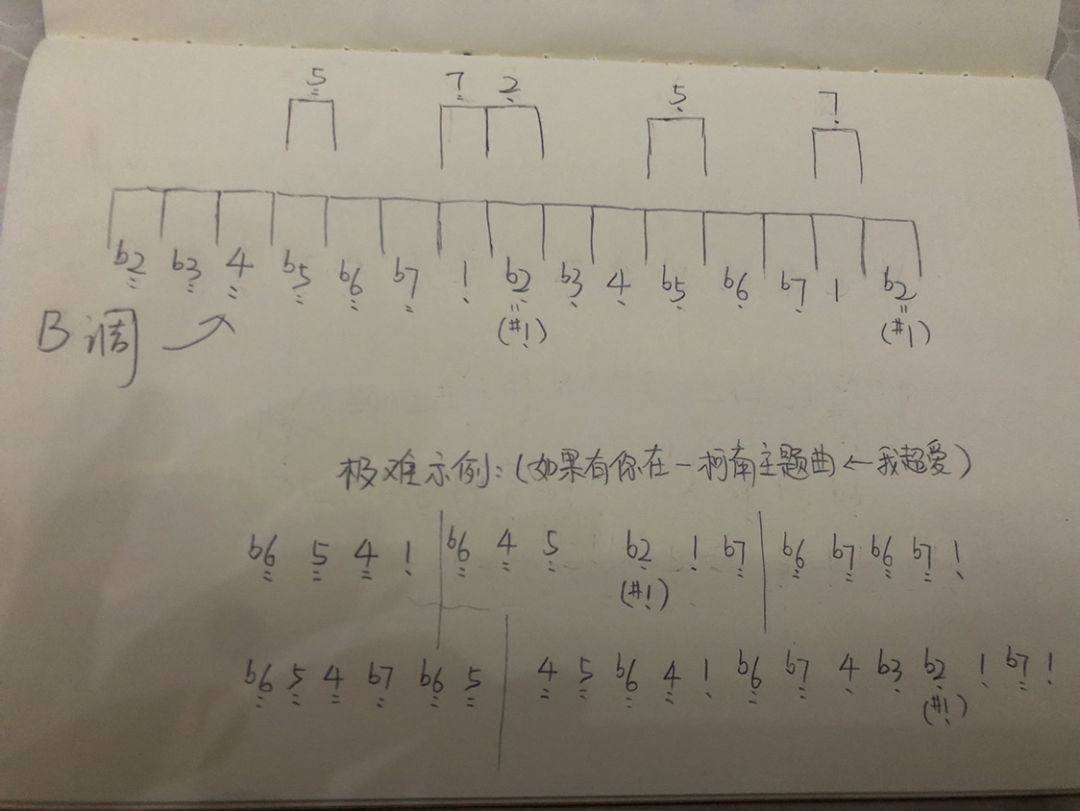 5 7 2 5 7
b2 b3 4 b5 b6 b7 1 b2 b3 4 b5 b6 b7 1 b2
(#1) (#1)
B调
极难示例:(如果有你在一柯南主题曲←我超爱)
b6 5 4 1 b6 4 5 b2 1 b7 b6 b7 b6 b7 1
(#1)
b6 5 4 b7 b6 5 4 5 b6 4 1 b6 b7 4 b3 b2 1 b7 1
(#1)